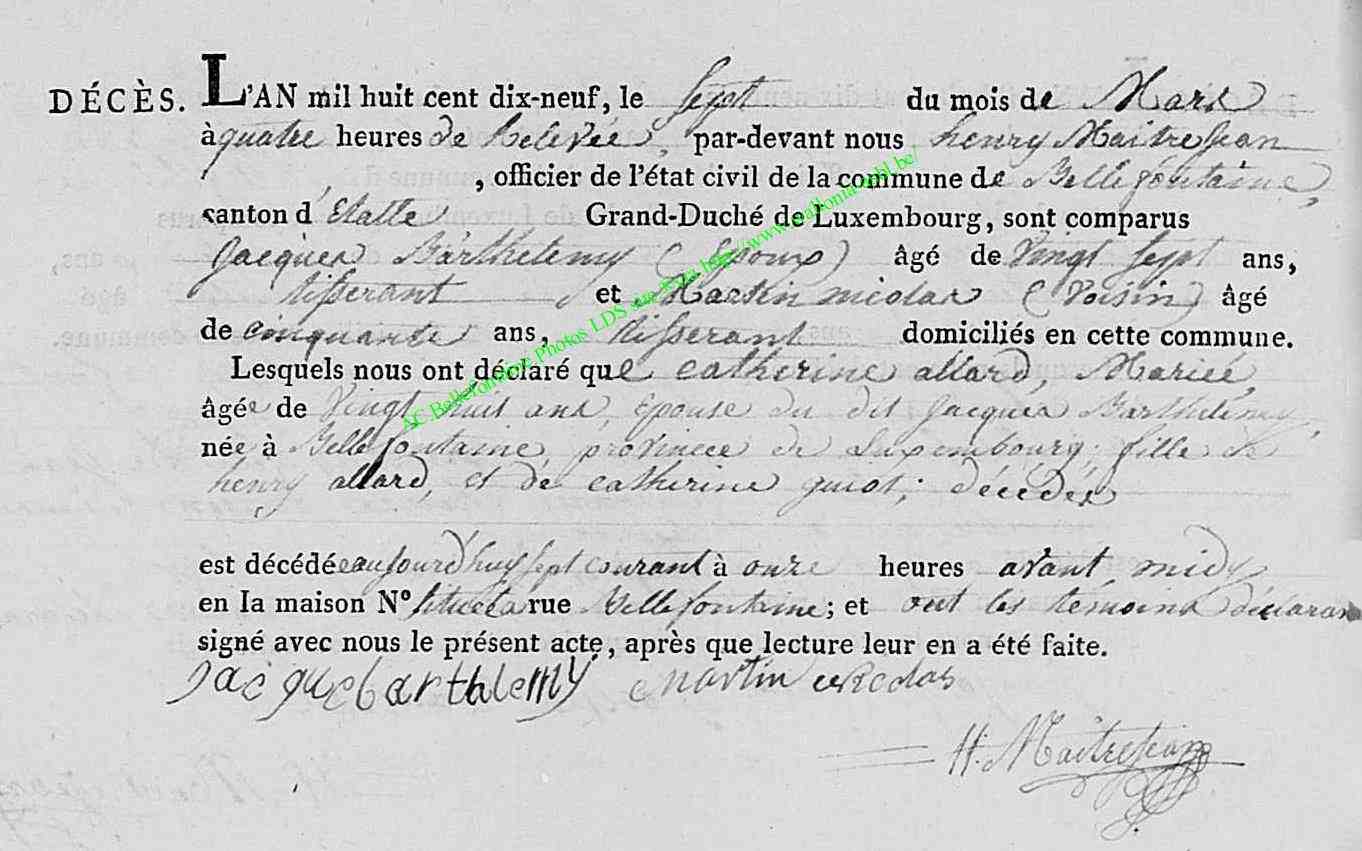 DÉCÈS. L'AN mil huit cent dix-neuf, le sept du mois de Mars
à quatre heures de Relevée, par-devant nous henry Maitrejean
, officier de l'état civil de la commune de Bellefontaine,
canton d'Etalle Grand-Duché de Luxembourg, sont comparus
Jacques Barthelemy (Epoux) âgé de Vingt sept ans,
tisserant et Martin nicolas (Voisin) âgé
de cinquante ans, tisserant domiciliés en cette commune.
Lesquels nous ont déclaré que catherine allard, Mariée,
âgée de Vingt huit ans, Epouse du dit Jacques Barthelemy,
née à Bellefontaine, province de Luxembourg, fille de
henry allard, et de catherine guiot; décédés
est décédée aujourd'huy sept courant à onze heures avant midy
en la maison N° située rue Bellefontaine; et ont les temoins déclarans
signé avec nous le présent acte, après que lecture leur en a été faite.
Jacque barthlemy Martin Nicolas
H. Maitrejean
AC Bellefontaine Photos LDS sur http://www.wallonia-asbl.be/